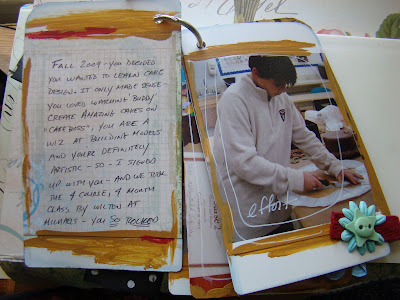 FALL 2009 - YOU DECIDED
YOU WANTED TO LEARN CAKE
DESIGN. IT ONLY MADE SENSE -
YOU LOVED WATCHING BUDDY
CREATE AMAZING CAKES ON
"CAKE BOSS", YOU ARE A
WIZ AT BUILDING MODELS
AND YOU'RE DEFINITELY
ARTISTIC - SO - I SIGNED
UP WITH YOU - AND WE TOOK
THE 4 COURSE, 4 MONTH
CLASS BY WILTON AT
MICHAELS - YOU SO ROCKED
effort